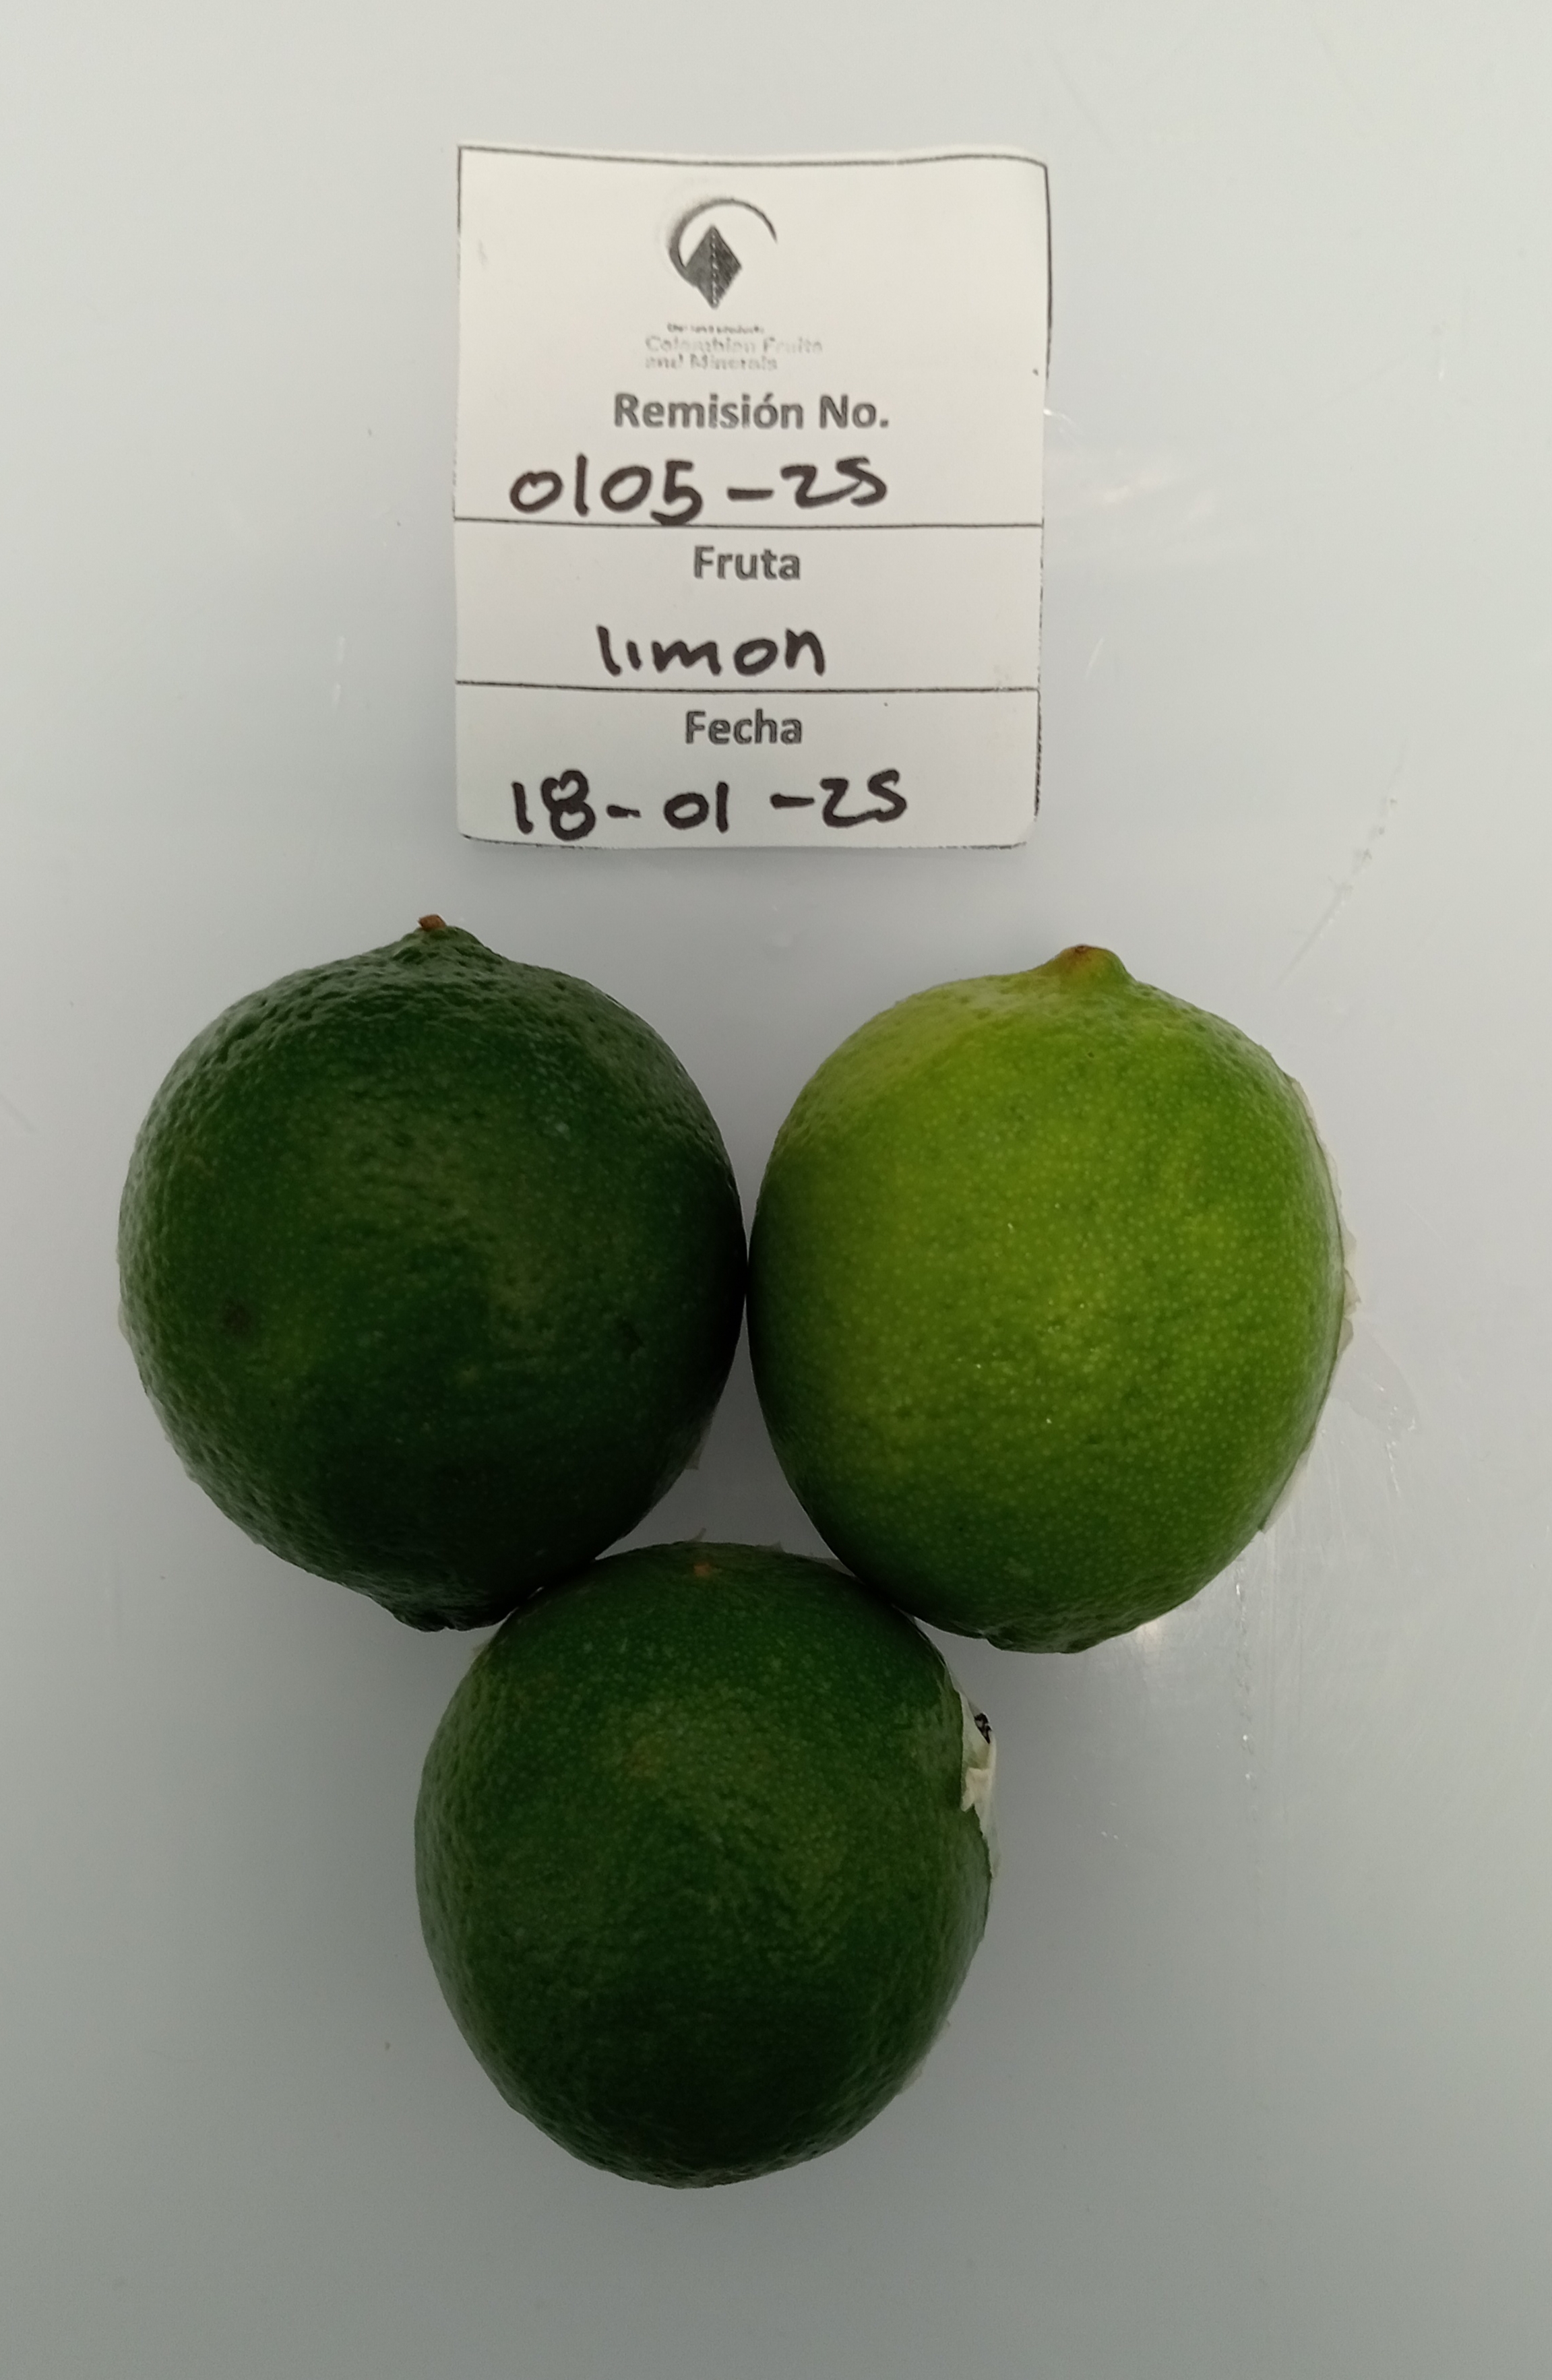 Colombian Fruits
and Minerals
Remisión No.
0105-25
Fruta
limon
Fecha
18-01-25